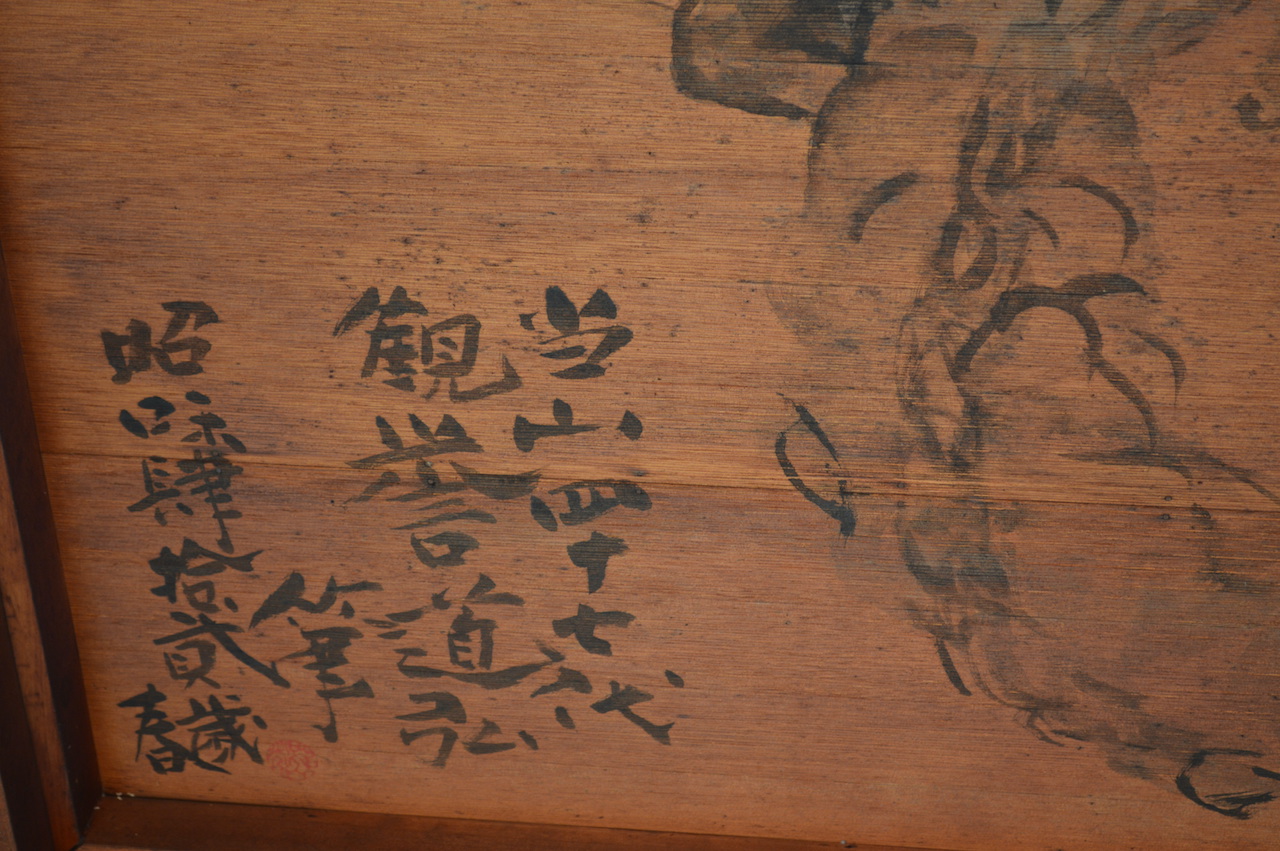 当山四十七代
観誉道弘
筆
昭咊肆拾貳歳春